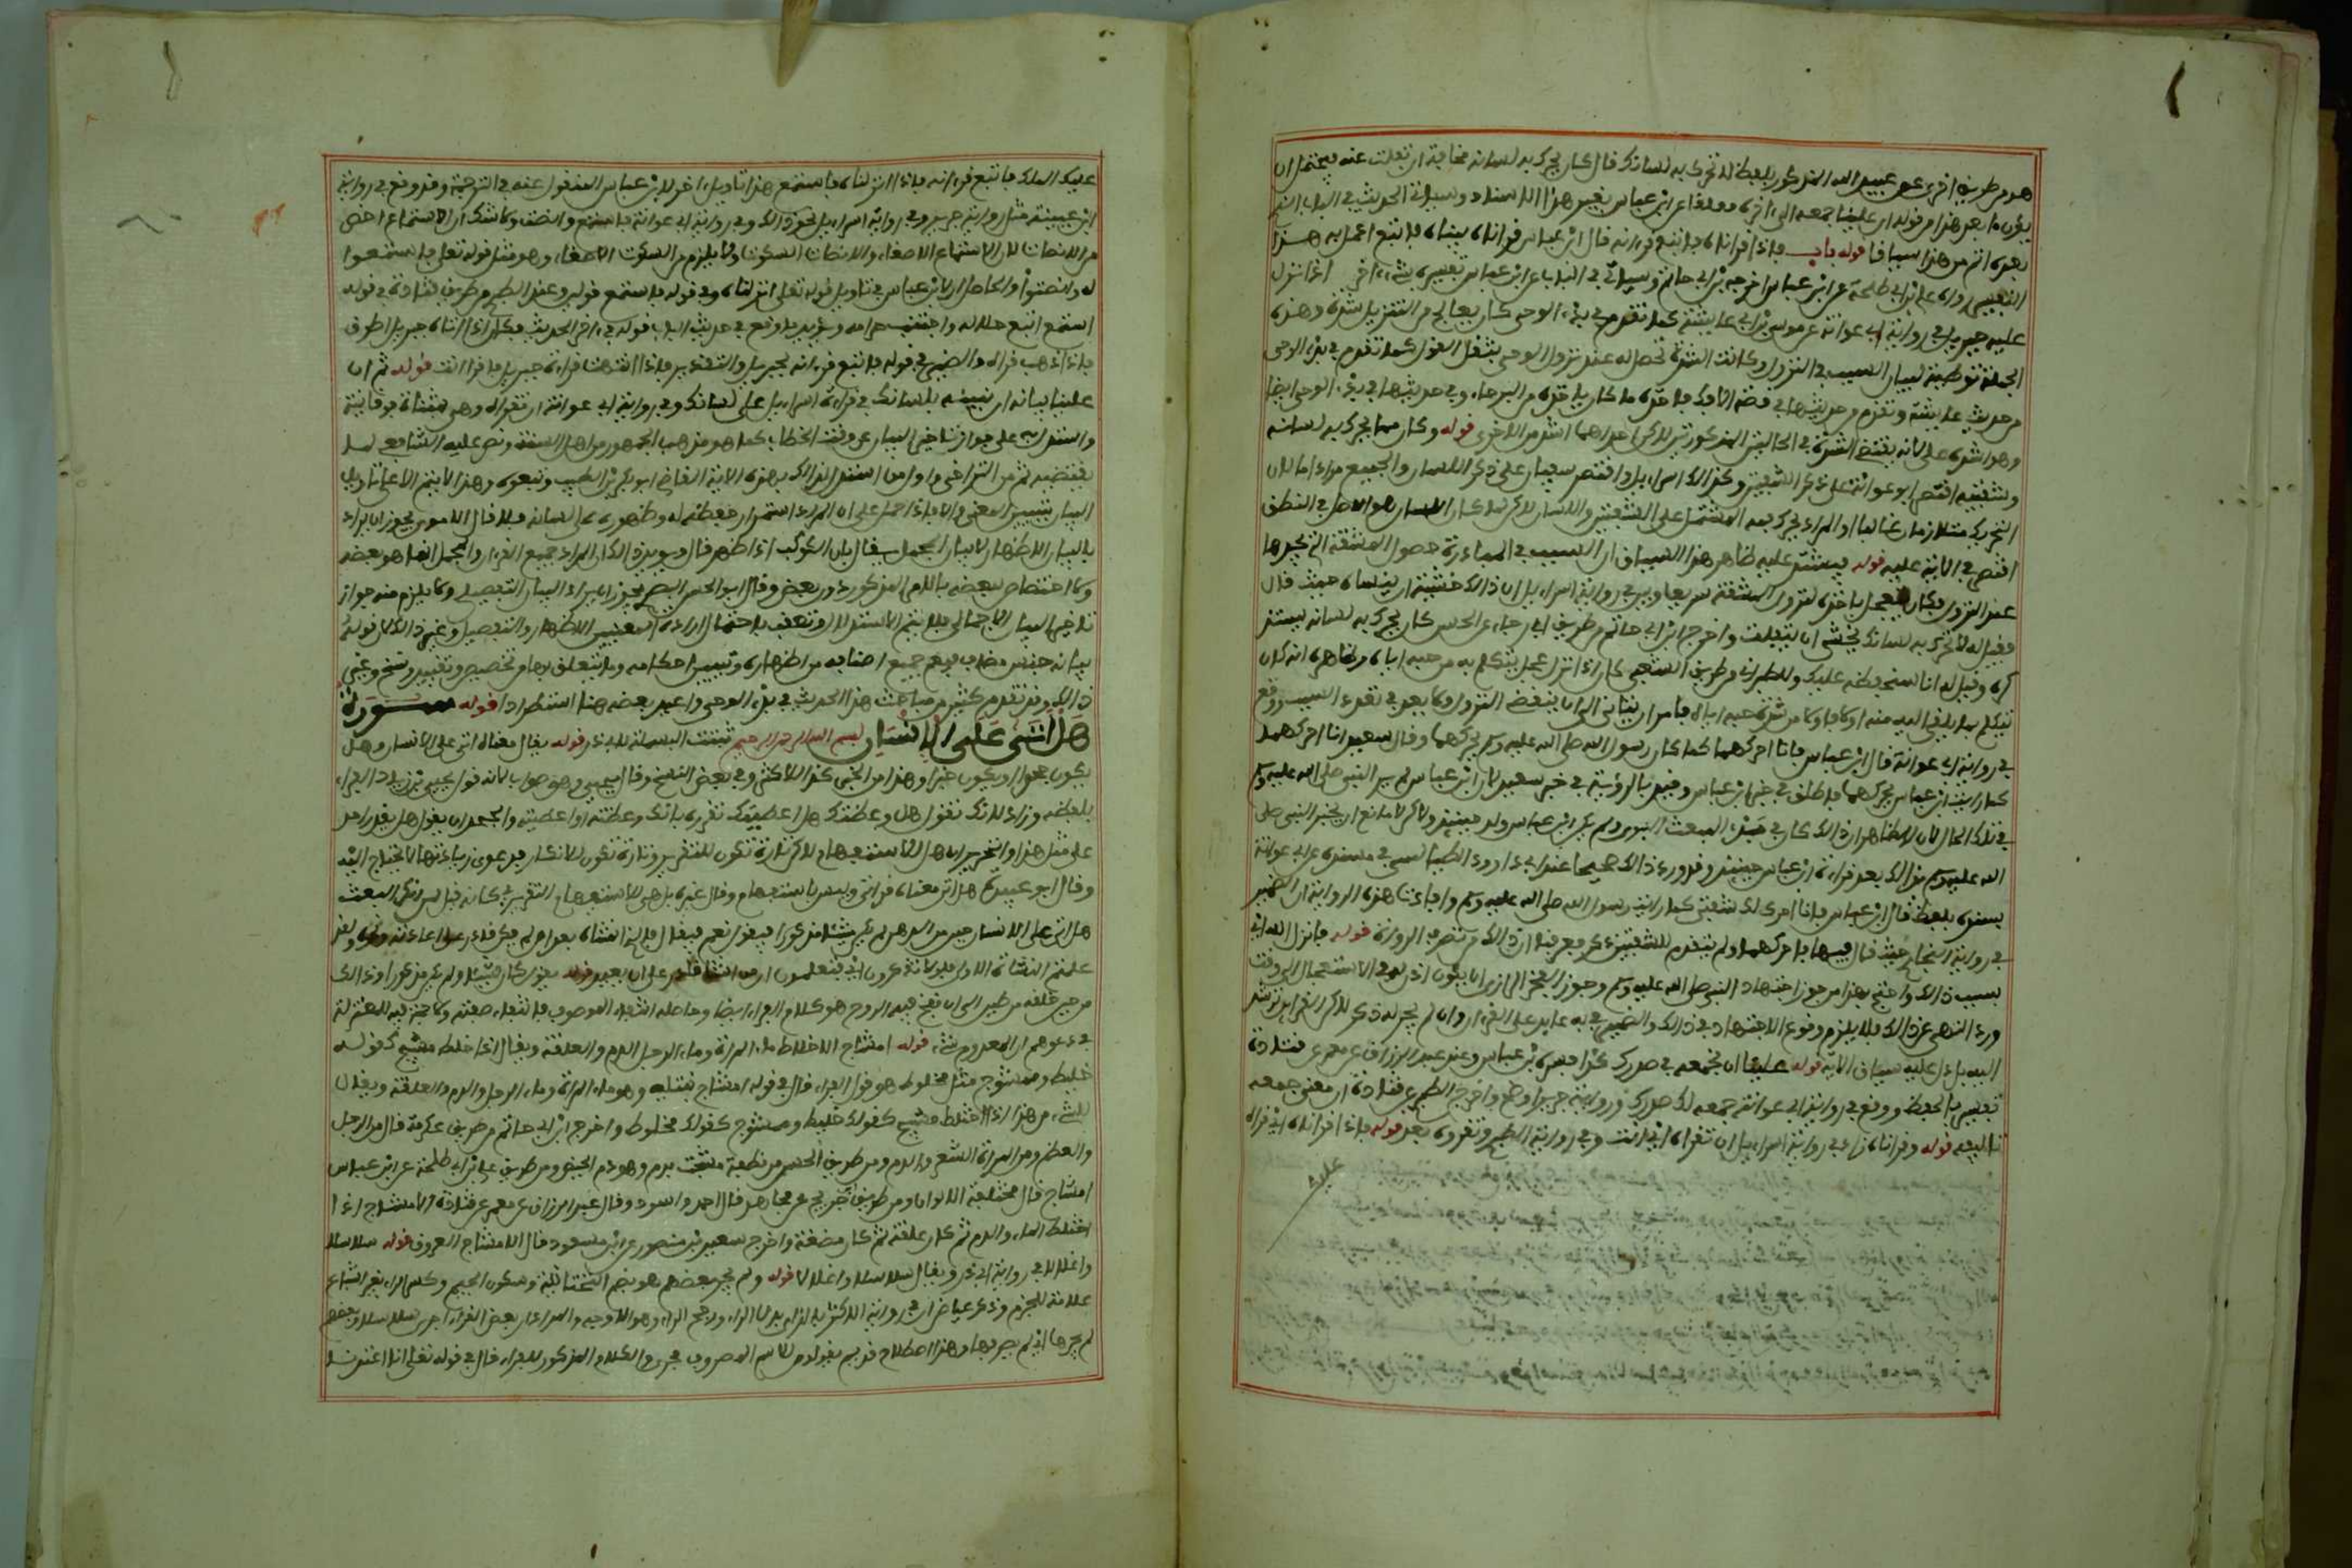 هو من طريق اخرى عن عبيد الله المذكور بلفظ لا تحرك به لسانك قال كان يحرك به لسانه مخافة ان يتفلت عنه فيحتمل ان
يكون ما بعد هذا من قوله ان علينا جمعه الى اخره معلقا عن ابن عباس بغير هذا الاسناد وسياتي الحديث في الباب الذي
بعده اتم من هذا سياقا قوله باب فاذا قراناه فاتبع قرءانه قال ابن عباس قراناه بيناه فاتبع اعمل به هذا
التفسير رواه علي بن ابي طلحة عن ابن عباس اخرجه ابن ابي حاتم وسياتي في الباب عن ابن عباس تفسيره بشيء اخر اذا نزل
عليه جبريل في رواية ابي عوانة عن موسى بن ابي عايشة كما تقدم في بدء الوحي كان يعالج من التنزيل شدة وهذه
الجملة توطية لبيان السبب في النزول وكانت الشدة تحصل له عند نزول الوحي بثقل القول كما تقدم في بدء الوحي
من حديث عايشة وتقدم من حديثها في قصة الافك فاخذه ما كان ياخذه من البرحاء وفي حديثها في بدء الوحي ايضا
وهو اشده علي لانه يقتضي الشدة في الحالتين المذكورتين لكن احداهما اشد من الاخرى قوله وكان مما يحرك به لسانه
وشفتيه اقتصر ابو عوانة على ذكر الشفتين وكذلك اسراءيل واقتصر سفيان على ذكر اللسان والجميع مراد اما لان
التحريكين متلازمان غالبا او المراد يحرك فمه المشتمل على الشفتين واللسان لكن لما كان اللسان هو الاصل في النطق
اقتصر في الاية عليه قوله فيشتد عليه ظاهر هذا السياق ان السبب في المبادرة حصول المشقة التي يجدها
عند النزول فكان يتعجل باخذه لتزول المشقة سريعا وبين في رواية اسراءيل ان ذلك خشية ان ينساه حيث قال
فقيل له لا تحرك به لسانك تخشى ان يتفلت واخرج ابن ابي حاتم من طريق ابي رجاء عن الحسن كان يحرك به لسانه يستذ
كره فقيل له انا سنحفظه عليك وللطبراني من طريق الشعبي كان اذا نزل عجل يتكلم به من حبه اياه وظاهره انه كان
يتكلم بما يلقى اليه منه اولا فاولا من شدة حبه اياه فامر ان يتانى الى ان ينقضي النزول ولا بعد في تعدد السبب ووقع
في رواية ابي عوانة قال ابن عباس فانا احركهما كما كان رسول الله صلى الله عليه وسلم يحركهما وقال سعيد انا احركهما
كما رايت ابن عباس يحركهما فاطلق في خبر ابن عباس وقيد بالرؤية في خبر سعيد لان ابن عباس لم ير النبي صلى الله عليه وسلم
في تلك الحال لان الظاهر ان ذلك كان في مبدإ المبعث النبوي ولم يكن ابن عباس ولد حينيذ ولاكن لا مانع ان يخبر النبي صلى
الله عليه وسلم بذلك بعد فراه ابن عباس حينيذ وقد ورد ذلك صحيحا عند ابي داوود الطيالسي في مسنده عن ابي عوانة
بسنده بلفظ قال ابن عباس فانا احرك لك شفتي كما رايت رسول الله صلى الله عليه وسلم وافادت هذه الرواية ان الضمير
في رواية البخاري حيث قال فيها فانا احركهما ولم يتقدم للشفتين ذكر فعرف ان ذلك من تصرف الرواة قوله فانزل الله اي
بسبب ذلك واحتج بهذا من جوز اجتهاد النبي صلى الله عليه وسلم وجوز الفخر الرازي ان يكون اذن له في الاستعجال الى وقت
ورود النهي عن ذلك فلا يلزم وقوع الاجتهاد في ذلك والضمير في به عايد على القرءان وان لم يجر له ذكر لاكن القرءان يرشد
اليه بل دل عليه سياق الاية قوله علينا ان نجمعه في صدرك كذا فسره ابن عباس وعند عبد الرزاق عن معمر عن قتادة
تفسيره بالحفظ ووقع في رواية ابي عوانة جمعه لك صدرك ورواية جرير اوضح واخرج الطبري عن قتادة ان معنى جمعه
تاليفه قوله وقرءانه زاد في رواية اسراءيل ان تقراه اي انت وفي رواية الطبري وتقرؤه بعد قوله فاذا قراناه اي قراه
عليك
عليك الملك فاتبع قرءانه فاذا انزلناه فاستمع هذا تاويل اخر لابن عباس غير المنقول عنه في الترجمة وقد وقع في رواية
ابن عيينة مثل رواية جرير وفي رواية اسراءيل نحو ذلك وفي رواية ابي عوانة فاستمع وانصت ولا شك ان الاستماع اخص
من الانصات لان الاستماع الاصغاء والانصات السكوت ولا يلزم من السكوت الاصغاء وهو مثل قوله تعالى فاستمعوا
له وانصتوا والحاصل ان لابن عباس في تاويل قوله تعالى انزلناه وفي قوله فاستمع قولين وعند الطبري من طريق قتادة في قوله
استمع اتبع حلاله واجتنب حرامه ويؤيد ما وقع في حديث الباب قوله في اخر الحديث فكان اذا اتاه جبريل اطرق
فاذا ذهب قراه والضمير في قوله فاتبع قرءانه لجبريل والتقدير فاذا انتهت قراءة جبريل فاقرا انت قوله ثم ان
علينا بيانه ان نبينه بلسانك في رواية اسراءيل على لسانك وفي رواية ابي عوانة ان تقراه وهي بمثناة فوقانية
واستدل به على جواز تاخير البيان عن وقت الخطاب كما هو مذهب الجمهور من اهل السنة ونص عليه الشافعي لما
تقتضيه ثم من التراخي واول من استدل لذلك بهذه الاية القاضي ابو بكر بن الطيب وتبعوه وهذا لا يتم الا على تاويل
البيان بتبيين المعنى والا فاذا حمل على ان المراد استمرار حفظه له وظهوره على لسانه فلا قال الامدي يجوز ان يراد
بالبيان الاظهار لا بيان المجمل يقال بان الكوكب اذا ظهر قال ويؤيد ذلك ان المراد جميع القرءان والمجمل انما هو بعضه
ولا اختصاص لبعضه بالامر المذكور دون بعض وقال ابو الحسن البصري يجوز ان يراد البيان التفصيلي ولا يلزم منه جواز
تاخير البيان الاجمالي فلا يتم الاستدلال وتعقب باحتمال ارادة المعنيين الاظهار والتفصيل وغير ذلك لان قوله
بيانه جنس مضاف فيعم جميع اصنافه من اظهاره وتبيين احكامه وما يتعلق بها من تخصيص وتقييد ونسخ وغير
ذلك وقد تقدم كثير من مباحث هذا الحديث في بدء الوحي واعيد بعضه هنا استطرادا قوله سورة
هل اتى على الانسان بسم الله الرحمن الرحيم ثبتت البسملة لابي ذر قوله يقال معناه اتى على الانسان وهل
يكون جحدا ويكون خبرا وهذا من الخبر كذا للاكثر وفي بعض النسخ وقال يحيى وهو صواب لانه قول يحيى بن زياد الفراء
بلفظه وزاد لانك تقول هل وعظتك هل اعطيتك تقرره بانك وعظته واعطيته والجحد ان يقول هل يقدر احد
على مثل هذا والتحرير ان هل للاستفهام لاكن تارة تكون للتقرير وتارة تكون للانكار فدعوى زيادتها لا يحتاج اليه
وقال ابو عبيدة هل اتى معناه قد اتى وليس باستفهام وقال غيره بل هي للاستفهام التقريري كانه قيل لمن انكر البعث
هل اتى على الانسان حين من الدهر لم يكن شيئا مذكورا فيقول نعم فيقال فالذي انشاه بعد ان لم يكن قادر على اعادته ونحوه ولقد
علمتم النشاة الاولى فلولا تذكرون اي فتعلمون ان من انشا قادر على ان يعيد قوله يقول كان شيئا ولم يكن مذكورا وذلك
من حين خلقه من طين الى ان نفخ فيه الروح هو كلام الفراء ايضا وحاصله انتفاء الموصوف بانتفاء صفته ولا حجة فيه للمعتزلة
في دعواهم ان المعدوم شيء قوله امشاج الاخلاط ماء المراة وماء الرجل الدم والعلقة ويقال اذا خلط مشيج كقولك
خليط وممشوج مثل مخلوط هو قول الفراء قال في قوله امشاج نبتليه وهو ماء المراة وماء الرجل والدم والعلقة ويقال
للشيء من هذا اذا اختلط مشيج كقولك خليط وممشوج كقولك مخلوط واخرج ابن ابي حاتم من طريق عكرمة قال من الرجل
والعظم ومن المراة الشعر والدم ومن طريق الحسن من نطفة مشجت بدم وهو دم الحيض ومن طريق علي بن ابي طلحة عن ابن عباس
امشاج قال مختلفة الالوان ومن طريق ابن جريج عن مجاهد قال احمر واسود وقال عبد الرزاق عن معمر عن قتادة الامشاج اذا
اختلط الماء والدم ثم كان علقة ثم كان مضغة واخرج سعيد بن منصور عن ابن مسعود قال الامشاج العروق قوله سلاسلا
واغلالا في رواية ابي ذر ويقال سلاسلا واغلالا قوله ولم يجر بعضهم هو بضم التحتانية وسكون الجيم وكسر الراء بغير اشباع
علامة للجزم وذكر عياض ان في رواية الاكثر بالزاي بدل الراء ورجح الراء وهو الاوجه والمراد ان بعض القراء اجرى سلاسلا وبعضهم
لم يجرها اي لم يصرفها وهذا اصطلاح قديم يقولون للاسم المصروف مجرى والكلام المذكور للفراء قال في قوله تعالى انا اعتدنا